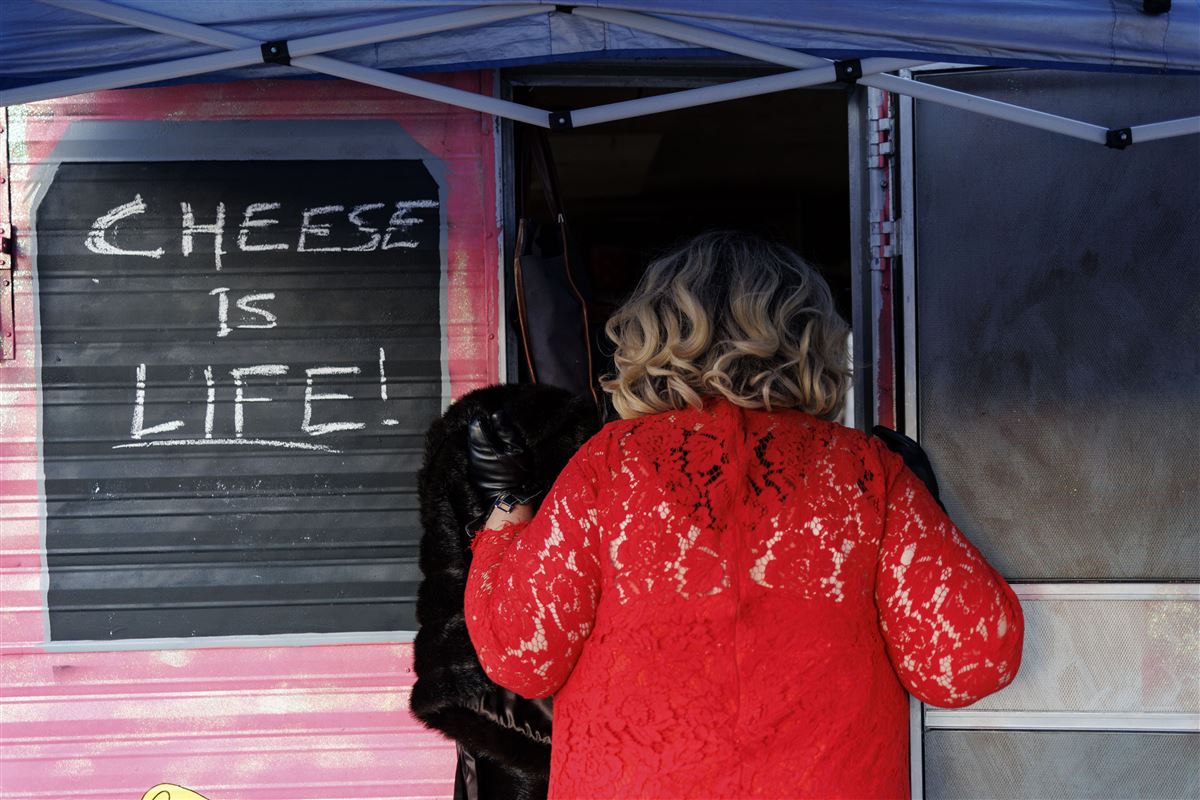 CHEESE
IS
LIFE!